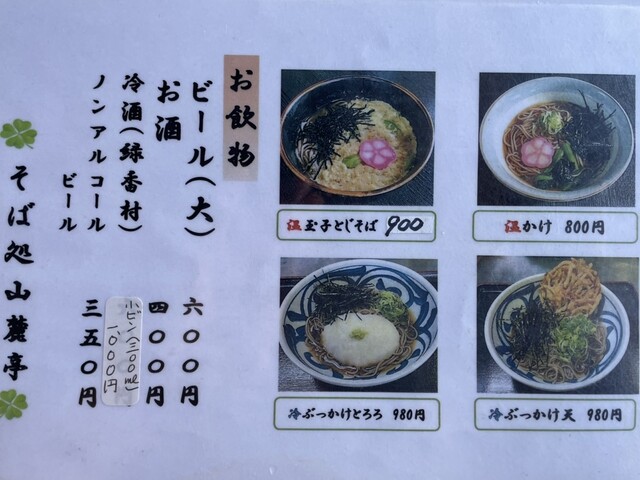 お飲物
ビール(大) 六〇〇円
お酒 四〇〇円
冷酒(緑香村)
小ビン(300ml)
1000円
ノンアルコール
ビール 三五〇円
そば処 山麓亭
温 玉子とじそば 900
温 かけ 800円
冷 ぶっかけとろろ 980円
冷 ぶっかけ天 980円